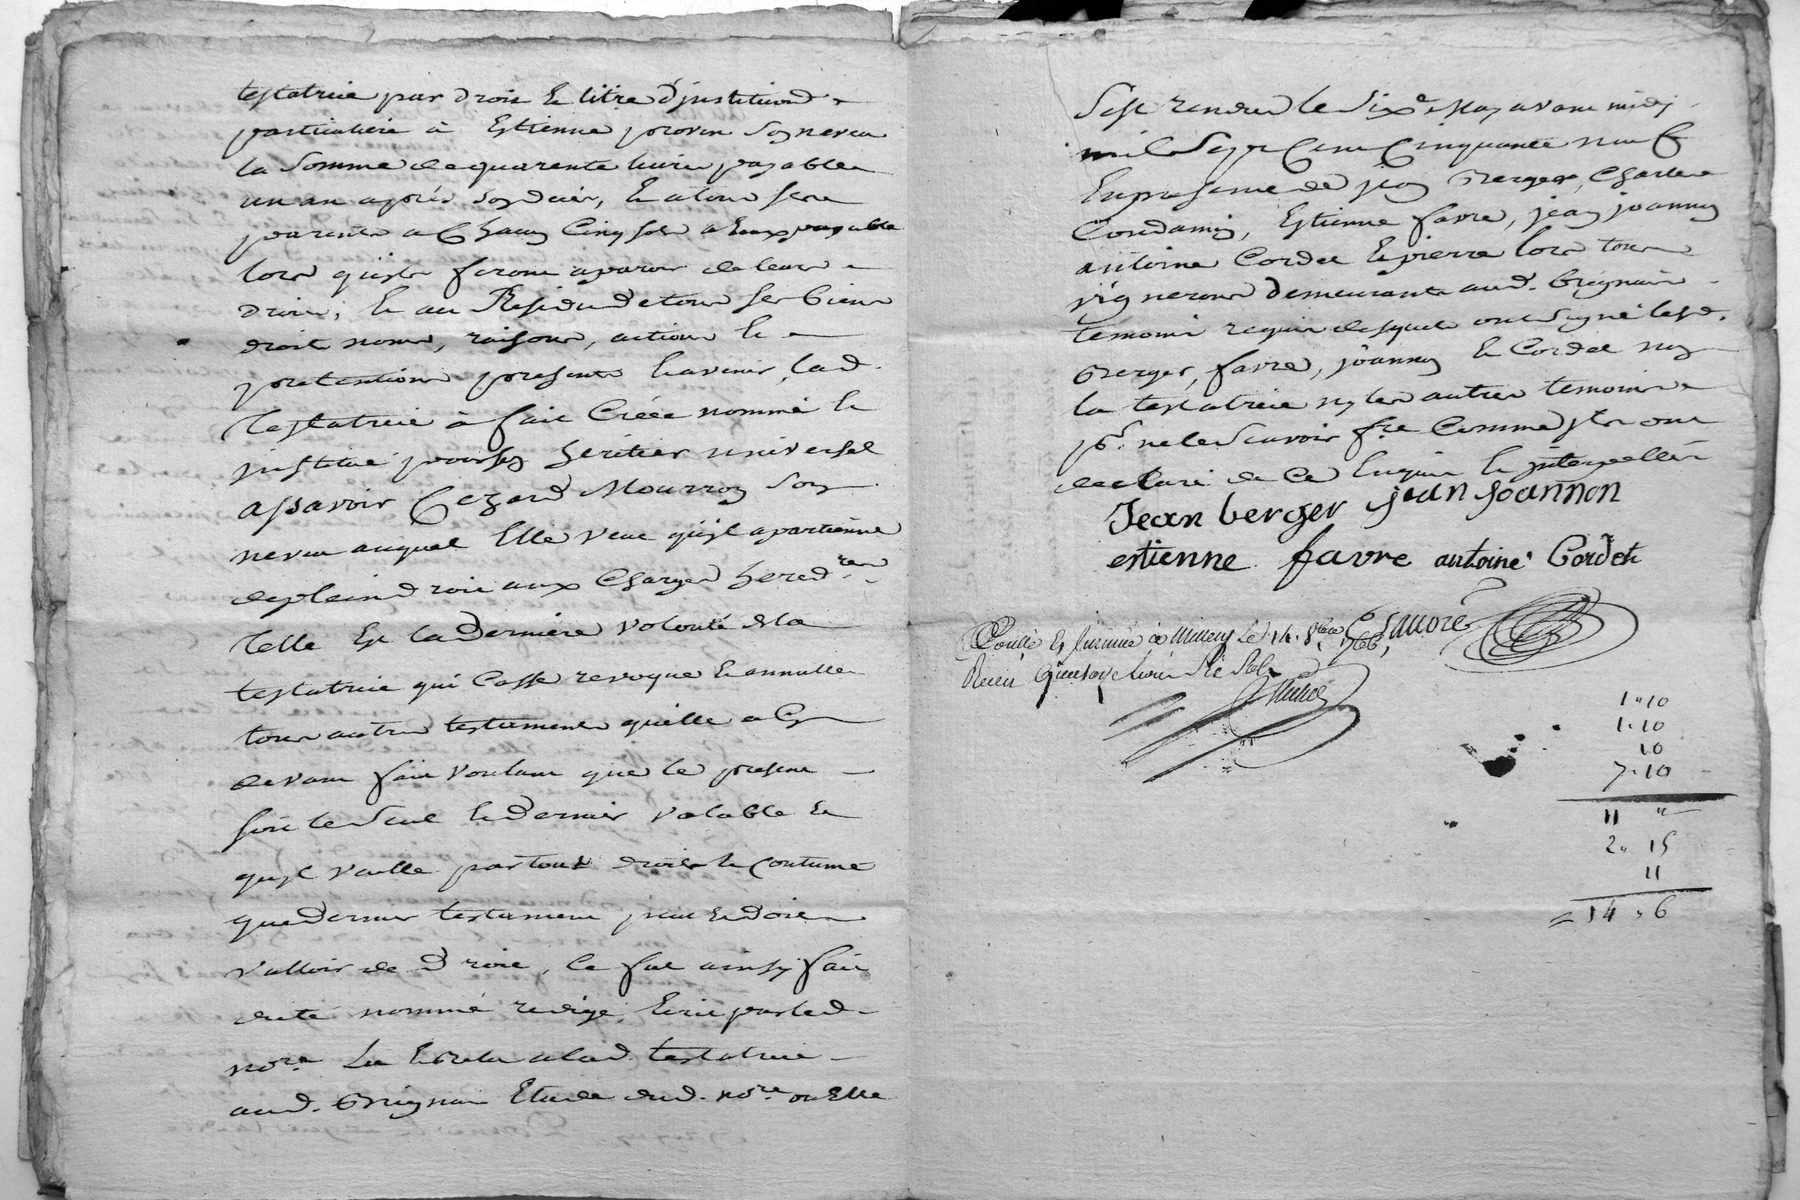 testatrice par droit et titre d'jnstitution
particuliere à Estienne proven son neveu
la somme de quarente livres payables
un an après son deces, et a tous ses
parents a chacun cinq sols a eux payable
lors qu'ils feront aparoir de leurs
droits, et au Residu de tous ses biens
droits noms, raisons, actions et
pretentions presents et avenir, lad.
Testatrice à fait créée nommé et
jnstitué pour son heritier universel
a savoir Cezard Mourron son
neveu auquel Elle veut qu'jl apartienne
de plein droit aux charges hered.res
Telle Est la Derniere volonté de la
testatrice qui casse revoque et annulle
tous autres testaments qu'elle a Cy
devant fait voulant que le present
soit le seul et dernier valable et
qu'jl vaille par tout droits et coutume
que dernier testament peut et doit
valloir de Droit, ce fut ainsy fait
dicté nommé redigé Ecrit par led.
no.re Lu et relu a lad. testatrice
aud. Grignin Etude dud. no.re ou Elle
s'est rendue le six.e May avant midy
mil sept cent cinquante neuf
En presence de jean Berger, Charles
Condamin, Estienne favre, jean joannon
antoine Cordet et pierre lors tous
vignerons demeurants aud. Grignin
temoins requis desquels ont signé lesd.
Berger, favre, joannon et Cordet non
la testatrice ny les autres temoins
p.r ne le scavoir f.re Comme jls ont
declaré de ce Enquis et jnterpellés
Jean berger jean Joannon
estienne favre antoine Cordet
Controllé Et Jnsinué à Millery Le 14. 8bre 1766,
Reçu quatorze livres six sols
1 " 10
1 " 10
10
7 " 10
11 "
2 " 15
11
14 " 6